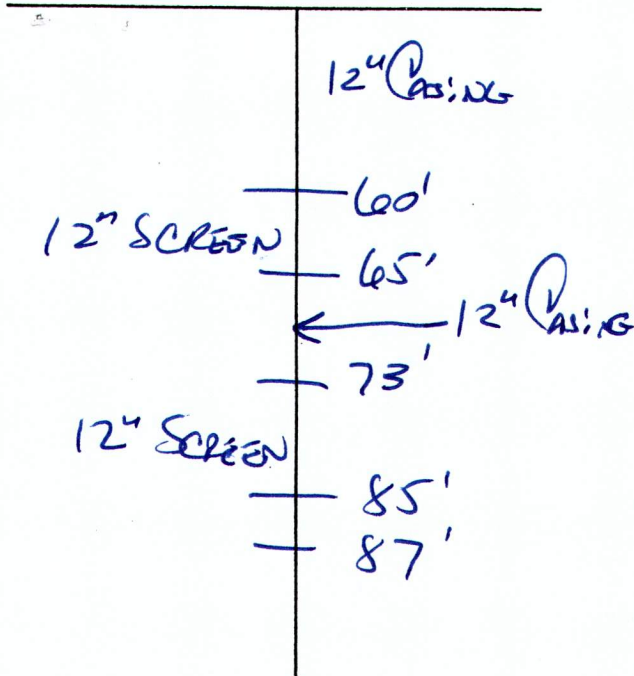 12" Casing
60'
12" SCREEN
65'
12" Casing
73'
12" SCREEN
85'
87'